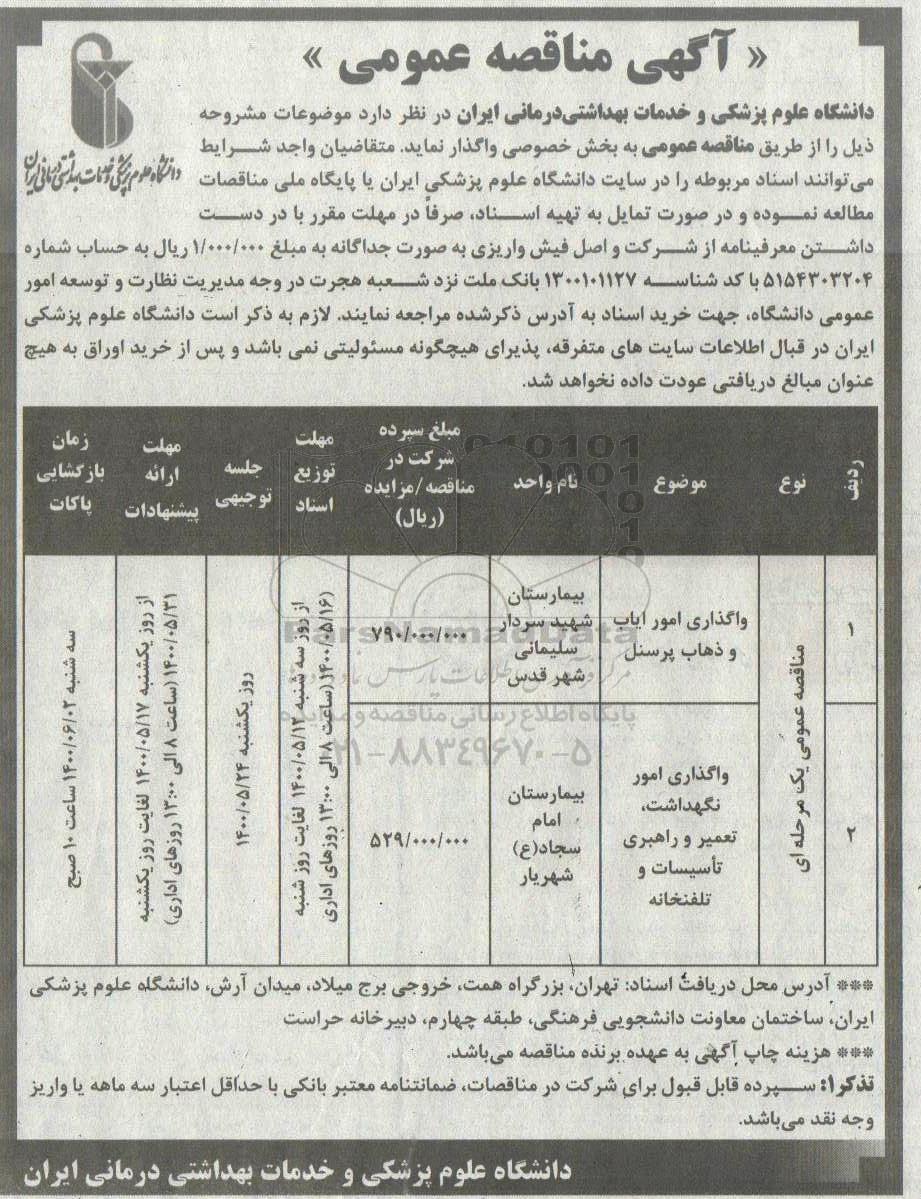 « آگهی مناقصه عمومی »
دانشگاه علوم پزشکی و خدمات بهداشتی درمانی ایران
دانشگاه علوم پزشکی و خدمات بهداشتی‌درمانی ایران در نظر دارد موضوعات مشروحه
ذیل را از طریق مناقصه عمومی به بخش خصوصی واگذار نماید. متقاضیان واجد شرایط
می‌توانند اسناد مربوطه را در سایت دانشگاه علوم پزشکی ایران یا پایگاه ملی مناقصات
مطالعه نموده و در صورت تمایل به تهیه اسناد، صرفاً در مهلت مقرر با در دست
داشتن معرفینامه از شرکت و اصل فیش واریزی به صورت جداگانه به مبلغ ۱/۰۰۰/۰۰۰ ریال به حساب شماره
۵۱۵۴۳۰۳۲۰۴ با کد شناسه ۱۳۰۰۱۰۱۱۲۷ بانک ملت نزد شعبه هجرت در وجه مدیریت نظارت و توسعه امور
عمومی دانشگاه، جهت خرید اسناد به آدرس ذکرشده مراجعه نمایند. لازم به ذکر است دانشگاه علوم پزشکی
ایران در قبال اطلاعات سایت های متفرقه، پذیرای هیچگونه مسئولیتی نمی باشد و پس از خرید اوراق به هیچ
عنوان مبالغ دریافتی عودت داده نخواهد شد.
ردیف
نوع
موضوع
نام واحد
مبلغ سپرده
شرکت در
مناقصه/مزایده
(ریال)
مهلت
توزیع
اسناد
جلسه
توجیهی
مهلت
ارائه
پیشنهادات
زمان
بازگشایی
پاکات
۱
مناقصه عمومی یک مرحله ای
واگذاری امور ایاب
و ذهاب پرسنل
بیمارستان
شهید سردار
سلیمانی
شهر قدس
۷۹۰/۰۰۰/۰۰۰
از روز سه شنبه ۱۴۰۰/۰۵/۱۲ لغایت روز شنبه
۱۴۰۰/۰۵/۱۶) (ساعت ۸ الی ۱۳:۰۰ روزهای اداری
روز یکشنبه ۱۴۰۰/۰۵/۲۴
از روز یکشنبه ۱۴۰۰/۰۵/۱۷ لغایت روز یکشنبه
۱۴۰۰/۰۵/۳۱ (ساعت ۸ الی ۱۳:۰۰ روزهای اداری)
سه شنبه ۱۴۰۰/۰۶/۰۲ ساعت ۱۰ صبح
۲
واگذاری امور
نگهداشت،
تعمیر و راهبری
تأسیسات و
تلفنخانه
بیمارستان
امام
سجاد(ع)
شهریار
۵۲۹/۰۰۰/۰۰۰
ParsNamadData
پایگاه اطلاع رسانی مناقصه و مزایده
۰۲۱-۸۸۳۴۹۶۷۰-۵
*** آدرس محل دریافت اسناد: تهران، بزرگراه همت، خروجی برج میلاد، میدان آرش، دانشگاه علوم پزشکی
ایران، ساختمان معاونت دانشجویی فرهنگی، طبقه چهارم، دبیرخانه حراست
*** هزینه چاپ آگهی به عهده برنده مناقصه می‌باشد.
تذکر۱: سپرده قابل قبول برای شرکت در مناقصات، ضمانتنامه معتبر بانکی با حداقل اعتبار سه ماهه یا واریز
وجه نقد می‌باشد.
دانشگاه علوم پزشکی و خدمات بهداشتی درمانی ایران